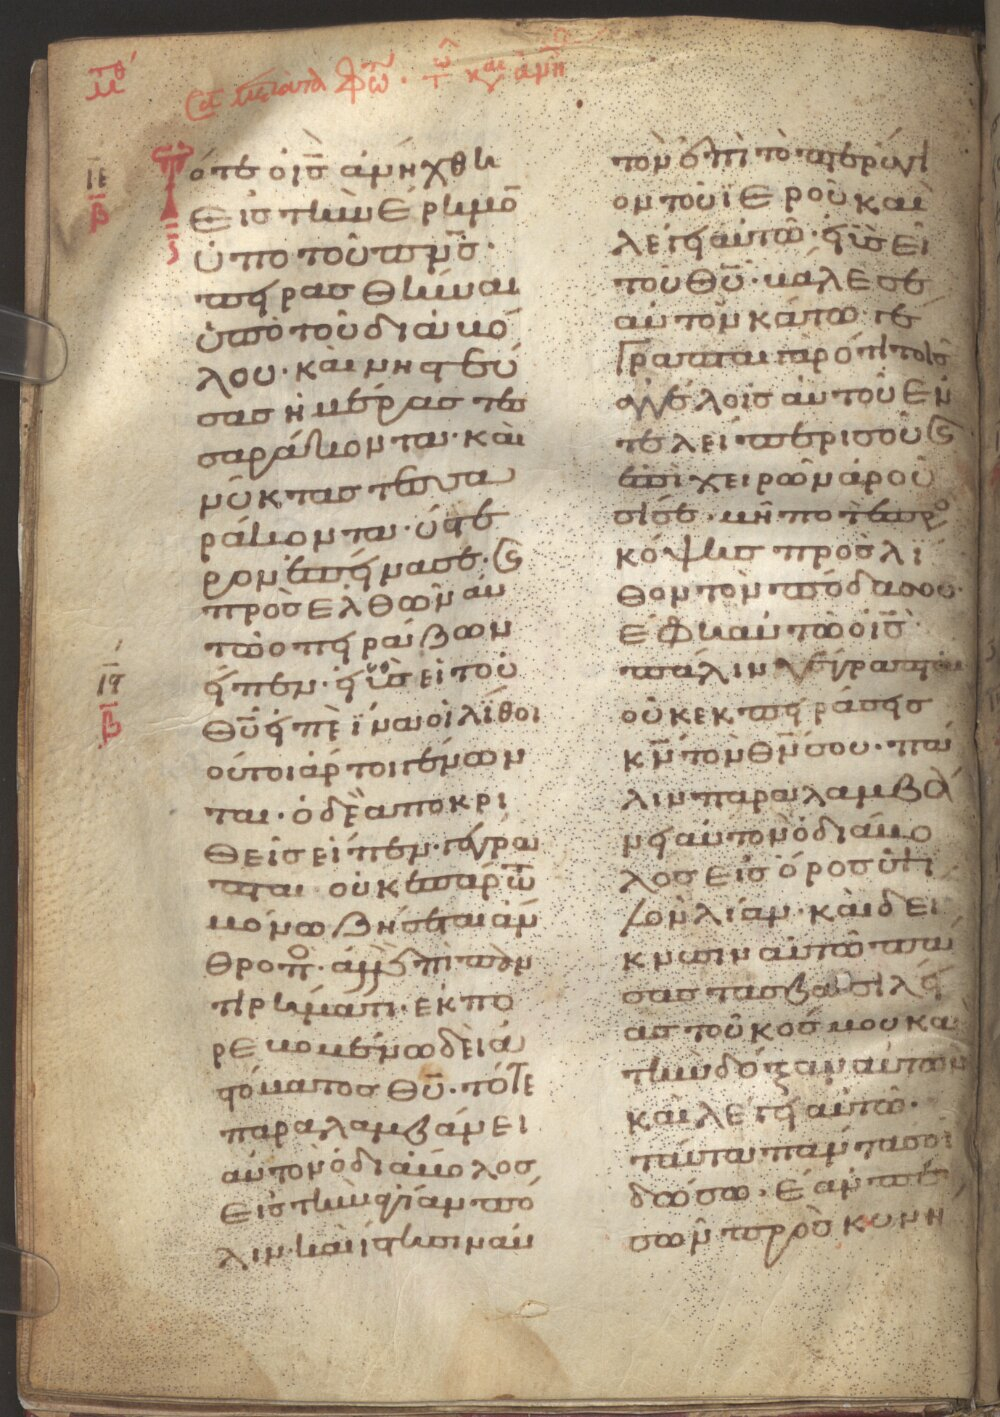 Τότε ὁ ις ἀνήχθη
εἰς τὴν ἔρημο
ὑπο τοῦ πνς·
πηρασθῆναι
ὑπὸ τοῦ διαβό
λου· καὶ νηστεύ
σας ἡμέρας τεσ
σαράκοντα· καὶ
νύκτας τεσσα
ράκοντα· ὕστε
ρον ἐπήνασε· ϗ
προσελθὼν αὐ
τῶ ὁ πηράζων
ἤπεν· ἡ υἱὸς εἶ τοῦ
θυ ἠπὲ ἵνα οἱ λίθοι
οὗτοι ἄρτοι γένων
ται· ὁ δὲ ἀποκρι
θεὶς εἶπεν· γέγρα
πται οὐκ ἐπ' ἄρτω
μόνω ζήσεται ἄν
θροπο· ἀλλ' ἐπὶ παν
τὶ ρήματι· ἐκπο
ρευομένω διὰ
στόματος θυ· τότε
παραλαμβάνει
αὐτὸν ὁ διάβολος
εἰς τὴν ἁγίαν πό
λιν· καὶ ἵστησιν αὐ
τὸν ἐπὶ τὸ πτερύγι
ον τοῦ ἱεροῦ και
λέγη αὐτῶ· ἡ υς εἶ
τοῦ θυ· βάλε σε
αὐτὸν κάτω· γέ
γραπται γαρ ὅτι τοῖς
ἀγγέλοις αὐτοῦ ἐν
τελεῖται περὶ σοῦ ϗ
ἐπὶ χειρῶν ἀροῦ
σί σε· μήποτε προ
κόψης προς λί
θον τὸν πόδα σου·
ἔφη αὐτῶ ὁ ις·
πάλιν γέγραπται
οὐκ ἐκπηράσης
κν τὸν θν σου· πά
λιν παραλαμβά
νη αὐτὸν ὁ διάβο
λος εἰς ὄρος ὑψι
λὸν λίαν· καὶ δεί
κνυσιν αὐτῶ πά
σας τας βασιλεί
ας τοῦ κόσμου κα
τὴν δόξαν αὐτῶν
και λέγη αὐτῶ·
ταῦτα πάντα σοι
δώσω· ἐὰν πε
σὼν προσκυνη